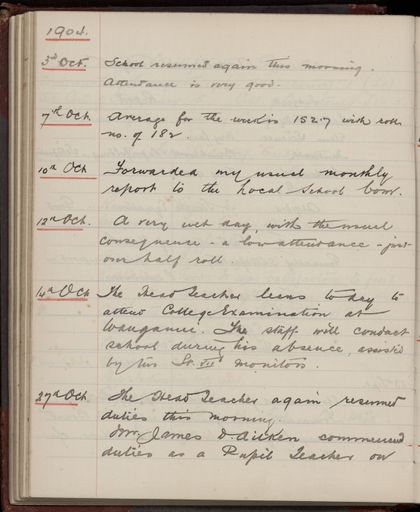 1904.
3rd Oct. School resumed again this morning.
Attendance is very good.
7th Oct. Average for the week is 152.7 with roll
no. of 182.
10th Oct Forwarded my usual monthly
report to the Local School Com.
12th Oct. A very wet day, with the usual
consequence - a low attendance - just
over half roll.
14th Oct The Head Teacher leaves to-day to
attend College Examination at
Wanganui. The staff will conduct
school during his absence, assisted
by two St. VII monitors.
27th Oct. The Head Teacher again resumed
duties this morning.
Mr. James D. Aitken commenced
duties as a Pupil Teacher on